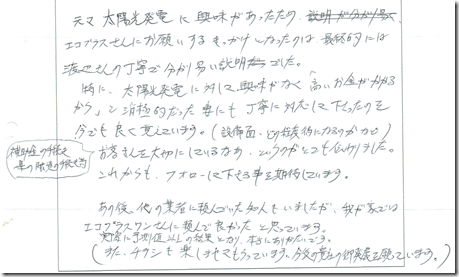 元々 太陽光発電に興味があったため、
エコプラスさんにお願いするきっかけとなったのは 最終的には
渡辺さんの丁寧で分かり易い説明でした。
特に、太陽光発電に対して興味がなく "高いお金がかかる
から" と消極的だった妻にも丁寧に対応して下さったのを
今でも良く覚えています。(設備面、
補助金の手続き
お客さんを大切にしているなあ、というのがとても伝わりました。
これからも、フォローして下さる事を期待しています。
あの後、他の業者に頼んでいた知人もいましたが、我が家では
エコプラスワンさんに頼んで良かったと思っています。
実際に予測値以上の結果となり、本当にありがたいことです。
(また、チラシも楽しませてもらっています。今後の貴社の御発展も願っています。)